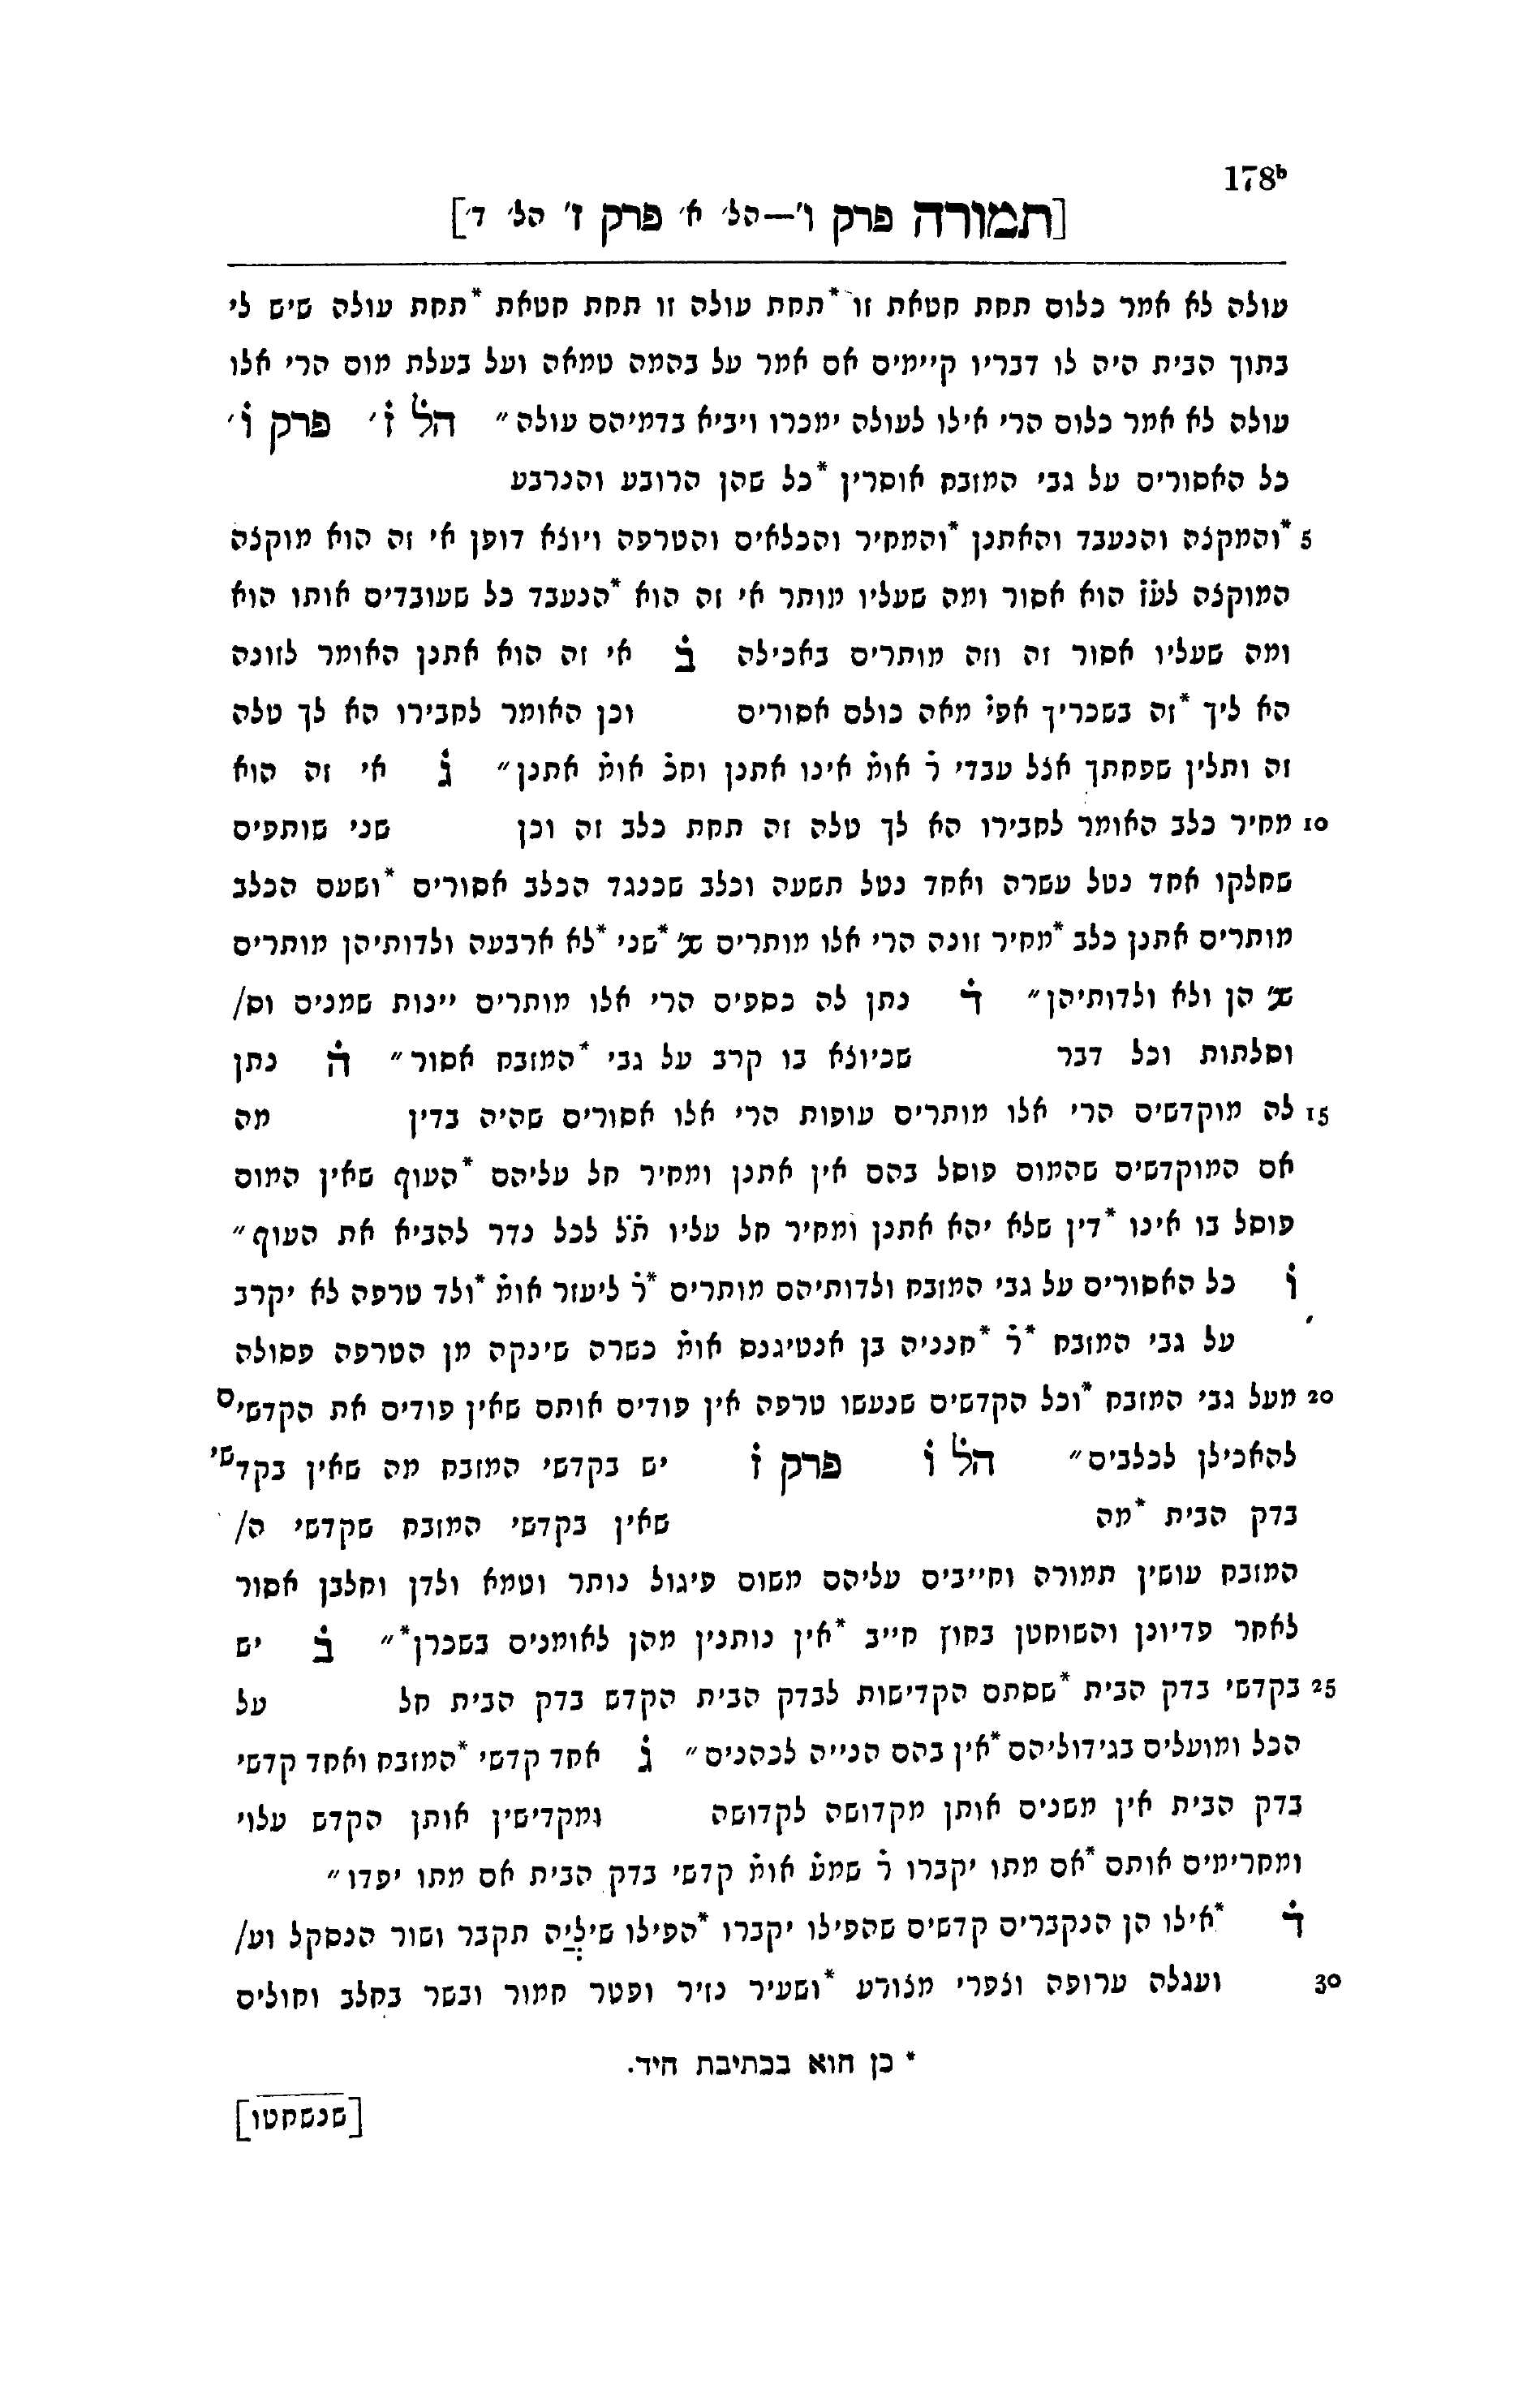 178ᵇ
[תמורה פרק ו'—הל' א' פרק ז' הל' ד']
עולה לא אמר כלום תחת חטאת זו *תחת עולה זו תחת חטאת *תחת עולה שיש לי
בתוך הבית היה לו דבריו קיימים אם אמר על בהמה טמאה ועל בעלת מום הרי אלו
עולה לא אמר כלום הרי אילו לעולה ימכרו ויביא בדמיהם עולה״ הל ז' פרק ו'
כל האסורים על גבי המזבח אוסרין *כל שהן הרובע והנרבע
5 *והמקצה והנעבד והאתנן *והמחיר והכלאים והטרפה ויוצא דופן אי זה הוא מוקצה
המוקצה לע̇ז̇ הוא אסור ומה שעליו מותר אי זה הוא *הנעבד כל שעובדים אותו הוא
ומה שעליו אסור זה וזה מותרים באכילה ב̇ אי זה הוא אתנן האומר לזונה
הא ליך *זה בשכריך אפי̇ מאה כולם אסורים וכן האומר לחבירו הא לך טלה
זה ותלין שפחתך אצל עבדי ר̇ אומ̇ אינו אתנן וחכ̇ אומ̇ אתנן״ ג̇ אי זה הוא
10 מחיר כלב האומר לחבירו הא לך טלה זה תחת כלב זה וכן שני שותפים
שחלקו אחד נטל עשרה ואחד נטל תשעה וכלב שכנגד הכלב אסורים *ושעם הכלב
מותרים אתנן כלב *מחיר זונה הרי אלו מותרים שנ' *שני *לא ארבעה ולדותיהן מותרים
שנ' הן ולא ולדותיהן״ ד̇ נתן לה כספים הרי אלו מותרים יינות שמנים וס/
וסלתות וכל דבר שכיוצא בו קרב על גבי *המזבח אסור״ ה̇ נתן
15 לה מוקדשים הרי אלו מותרים עופות הרי אלו אסורים שהיה בדין מה
אם המוקדשים שהמום פוסל בהם אין אתנן ומחיר חל עליהם *העוף שאין המום
פוסל בו אינו *דין שלא יהא אתנן ומחיר חל עליו ת̇ל̇ לכל נדר להביא את העוף״
ו̇ כל האסורים על גבי המזבח ולדותיהם מותרים *ר̇ ליעזר אומ̇ *ולד טרפה לא יקרב
על גבי המזבח *ר̇ *חנניה בן אנטיגנס אומ̇ כשרה שינקה מן הטרפה פסולה
20 מעל גבי המזבח *וכל הקדשים שנעשו טרפה אין פודים אותם שאין פודים את הקדשים
להאכילן לכלבים״ הל ו̇ פרק ז̇ יש בקדשי המזבח מה שאין בקדשי
בדק הבית *מה שאין בקדשי המזבח שקדשי ה/
המזבח עושין תמורה וחייבים עליהם משום פיגול נותר וטמא ולדן וחלבן אסור
לאחר פדיונן והשוחטן בחוץ חייב *אין נותנין מהן לאומנים בשכרן*״ ב̇ יש
25 בקדשי בדק הבית *שסתם הקדישות לבדק הבית הקדש בדק הבית חל על
הכל ומועלים בגידוליהם *אין בהם הנייה לכהנים״ ג̇ אחד קדשי *המזבח ואחד קדשי
בדק הבית אין משנים אותן מקדושה לקדושה ומקדישין אותן הקדש עלוי
ומחרימים אותם *אם מתו יקברו ר̇ שמע̇ אומ̇ קדשי בדק הבית אם מתו יפדו״
ד̇ *אילו הן הנקברים קדשים שהפילו יקברו *הפילו שיליה תקבר ושור הנסקל וע/
30 ועגלה ערופה וצפרי מצורע *ושעיר נזיר ופטר חמור ובשר בחלב וחולים
* כן הוא בכתיבת היד.
[שנשחטו]